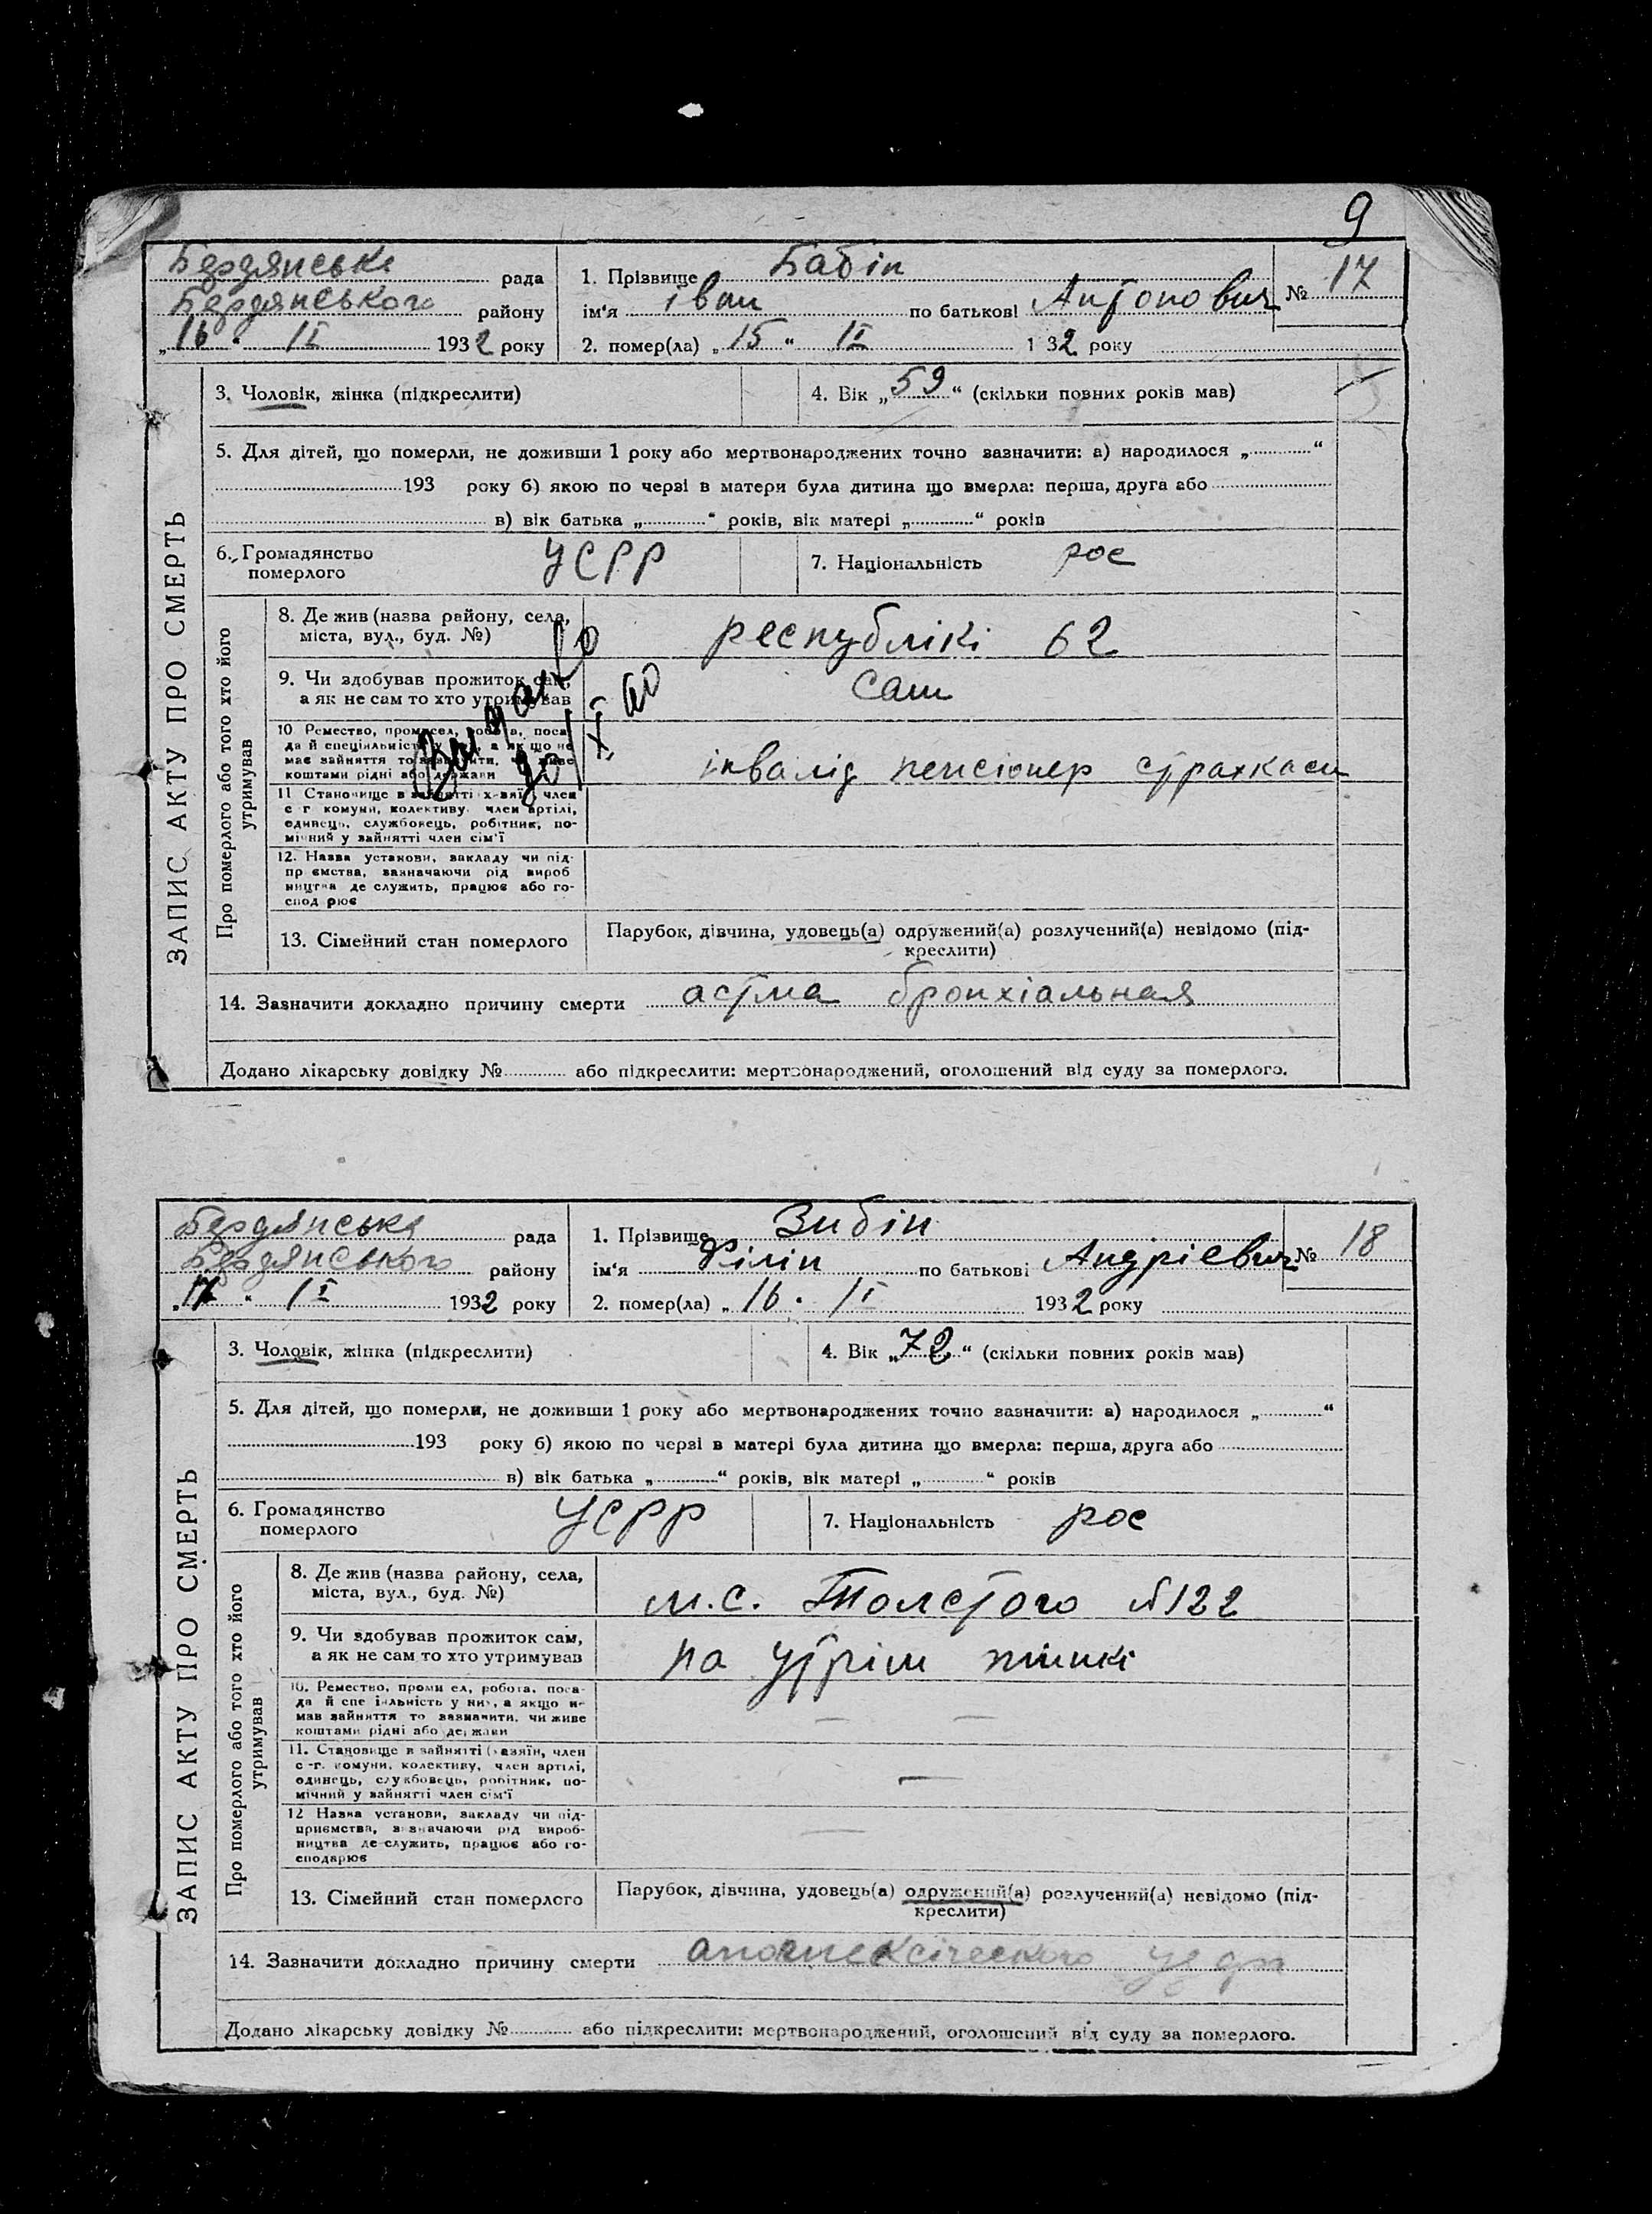 9
Бердянська рада
Бердянського району
„16“ II 1932 року
1. Прізвище Бабін
ім'я іван по батькові Антонович
№ 17
2. помер(ла) „15“ II 1 32 року
ЗАПИС АКТУ ПРО СМЕРТЬ
3. Чоловік, жінка (підкреслити)
4. Вік „59“ (скільки повних років мав)
5. Для дітей, що померли, не доживши 1 року або мертвонароджених точно зазначити: а) народилося „ “
193 року б) якою по черзі в матери була дитина що вмерла: перша, друга або
в) вік батька „ “ років, вік матері „ “ років
6. Громадянство
померлого
УСРР
7. Національність рос
Про померлого або того хто його
утримував
8. Де жив (назва району, села,
міста, вул., буд. №)
республікі 62
9. Чи здобував прожиток сам,
а як не сам то хто утримував
сам
10 Ремество, промисел, робота, поса-
да й спеціяльність у них, а якщо не
має зайняття то зазначити, чи живе
коштами рідні або держави
інвалід пенсіонер страхкаси
11 Становище в зайнятті (хазяїн, член
с г комуни, колективу, член артілі,
одинець, службовець, робітник, по-
мічний у зайнятті член сім'ї
12. Назва установи, закладу чи під-
пр ємства, зазначаючи рід вироб
ництва де служить, працює або го-
спод рює
13. Сімейний стан померлого
Парубок, дівчина, удовець(а) одружений(а) розлучений(а) невідомо (під-
креслити)
14. Зазначити докладно причину смерти астма бронхіальная
Додано лікарську довідку № або підкреслити: мертвонароджений, оголошений від суду за померлого.
Бердянська рада
Бердянського району
„17“ II 1932 року
1. Прізвище Зибін
ім'я Філіп по батькові Андріевич
№ 18
2. помер(ла) „16“ II 1932 року
ЗАПИС АКТУ ПРО СМЕРТЬ
3. Чоловік, жінка (підкреслити)
4. Вік „72“ (скільки повних років мав)
5. Для дітей, що померли, не доживши 1 року або мертвонароджених точно зазначити: а) народилося „ “
193 року б) якою по черзі в матері була дитина що вмерла: перша, друга або
в) вік батька „ “ років, вік матері „ “ років
6. Громадянство
померлого
УСРР
7. Національність рос
Про померлого або того хто його
утримував
8. Де жив (назва району, села,
міста, вул., буд. №)
м.с. Толстого №122
9. Чи здобував прожиток сам,
а як не сам то хто утримував
на утрім жінкі
10. Ремество, проми ел, робота, поса-
да й спе іяльність у них, а якщо не
мав зайняття то зазначити, чи живе
коштами рідні або держави
11. Становище в зайнятті (хазяїн, член
с -г. комуни, колективу, член артілі,
одинець, службовець, робітник, по-
мічний у зайнятті член сім'ї
12 Назва установи, закладу чи під-
приємства, зазначаючи рід вироб-
ництва де служить, працює або го-
сподарює
13. Сімейний стан померлого
Парубок, дівчина, удовець(а) одружений(а) розлучений(а) невідомо (під-
креслити)
14. Зазначити докладно причину смерти апоплексіческого
Додано лікарську довідку № або підкреслити: мертвонароджений, оголошений від суду за померлого.